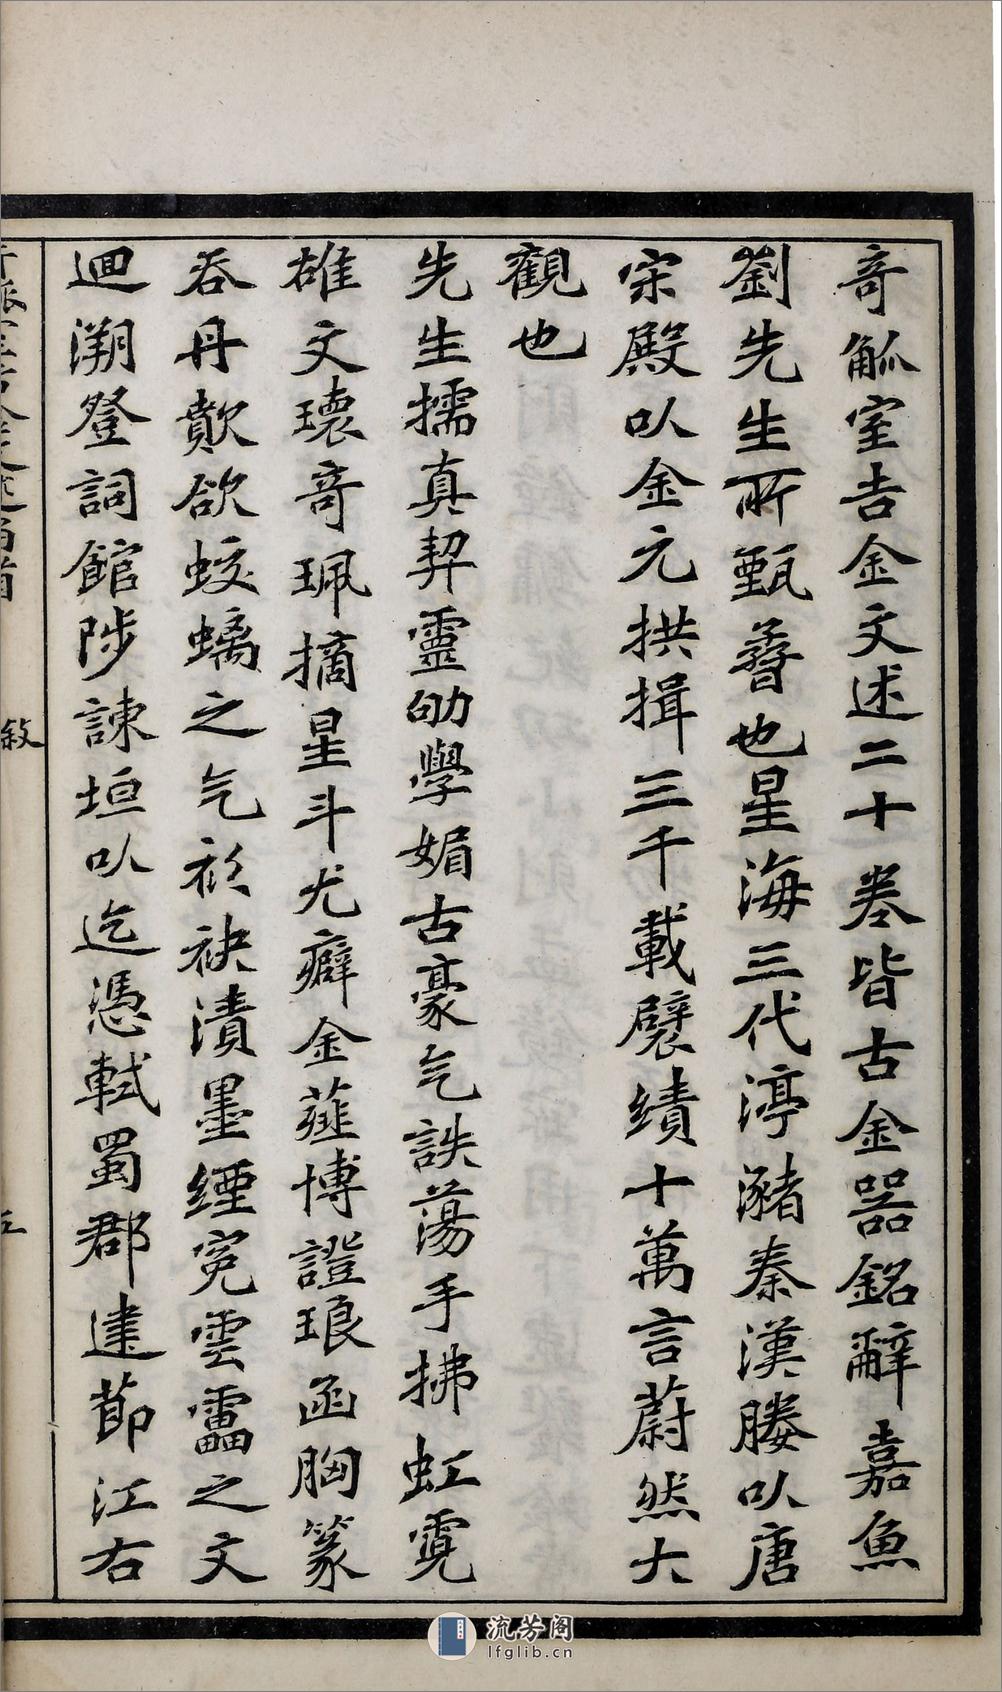 奇觚室吉金文述二十卷皆古金器銘辭嘉魚
劉先生所甄彝也星海三代渟瀦秦漢媵㕥唐
宋殿㕥金元拱揖三千載襞績十萬言蔚然大
觀也
先生擩真契靈劬學媚古豪气詄蕩手拂虹霓
雄文瓌奇珮摘星斗尤癖金薤博證琅函胸篆
吞丹歕欱蛟螭之气袀袂漬墨纆寃雲靁之文
迴溯登詞館陟諫垣㕥迄憑軾蜀郡建節江右
敘
流芳阁
lfglib.cn